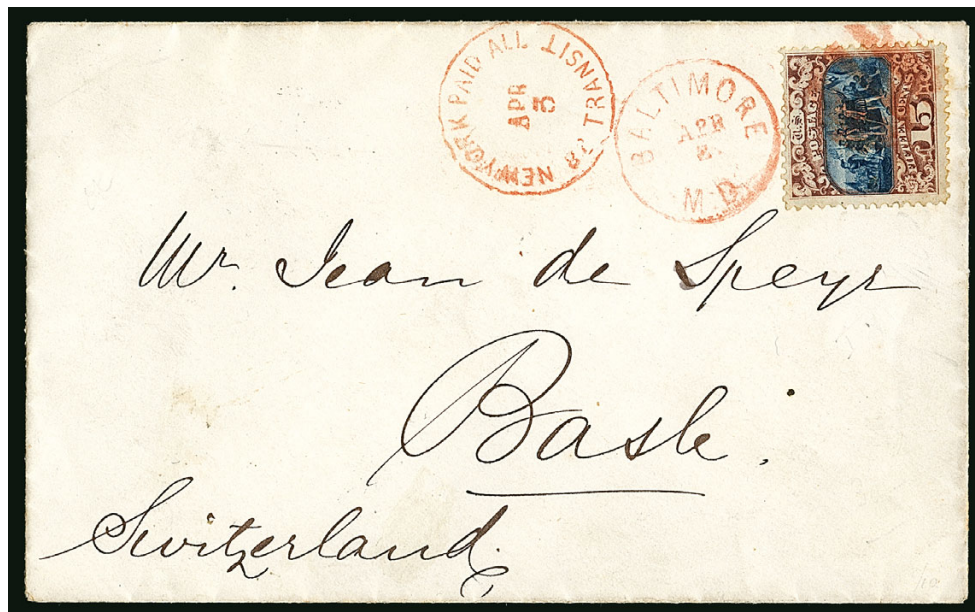 NEW YORK PAID ALL
BR. TRANSIT
APR
5
BALTIMORE
APR
M.D.
U.S.
POSTAGE
15
FIFTEEN CENTS
Mr. Jean de Speyr
Basle.
Switzerland.